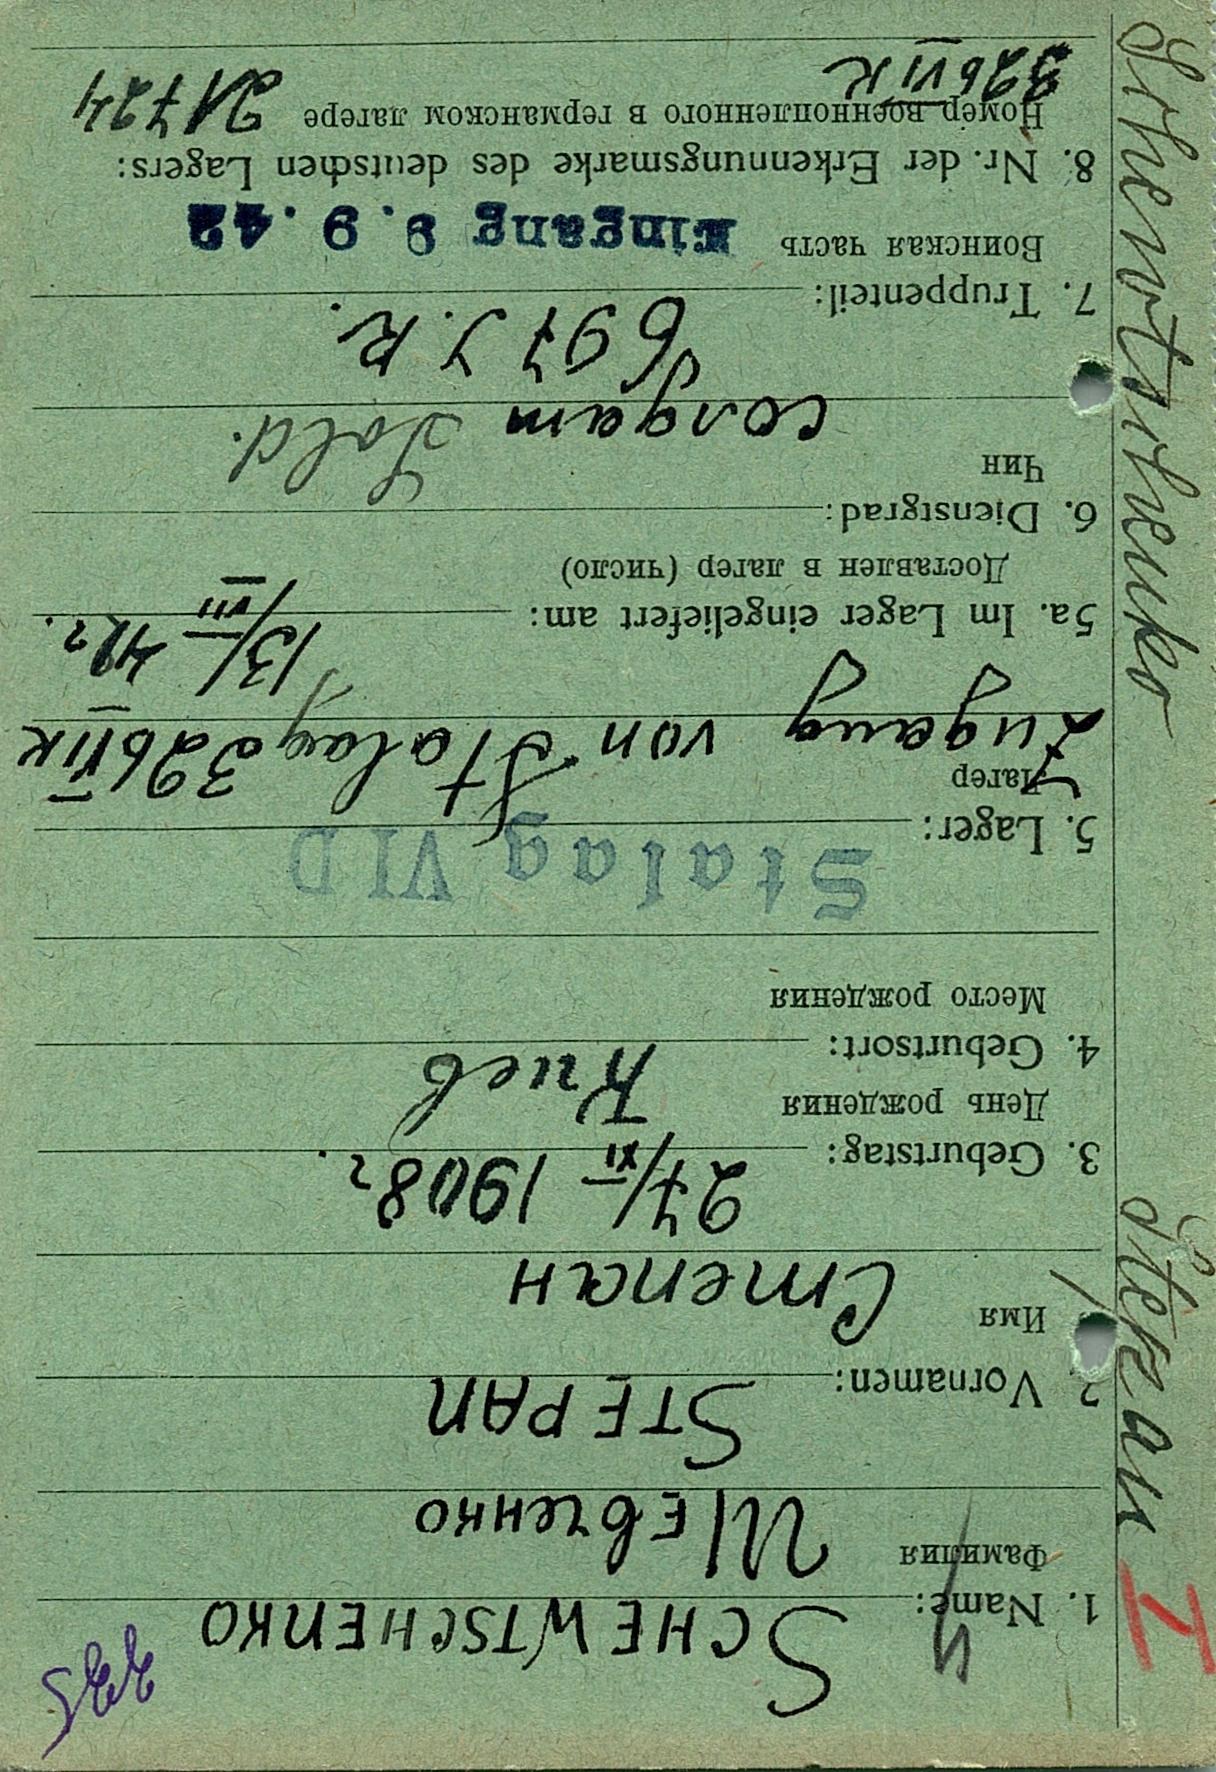 1. Name: SCHEWTSCHENKO
Фамилия Шевченко
2. Vornamen: STEPAN
Имя Степан
3. Geburtstag: 27/XI 1908 г.
День рождения
4. Geburtsort: Киев
Место рождения
Stalag VI D
5. Lager:
Лагер
Zugang von Stalag 326 VI K
5a. Im Lager eingeliefert am: 13/VIII 42 г.
Доставлен в лагер (число)
6. Dienstgrad:
Чин солдат Sold.
7. Truppenteil: 697 J.R.
Воинская часть Eingang 9.9.42
8. Nr. der Erkennungsmarke des deutschen Lagers:
Номер военнопленного в германском лагере 21724
326 VI K
Schewtschenko Stepan I